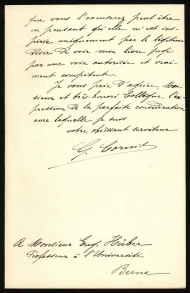 que vous l'excuserez peut être
en pensant qu'elle m'est ins-
pirée uniquement par le légitime
désir de voir mon livre jugé
par une voix autorisée et vrai-
ment compétente.
Je vous prie d'agréer, Mon-
sieur et très honoré Collègue, l'ex-
pression de la parfaite considération
avec laquelle je suis
votre obéissant serviteur
G. Cornil
A Monsieur Eug. Huber
Professeur à l'Université
Berne